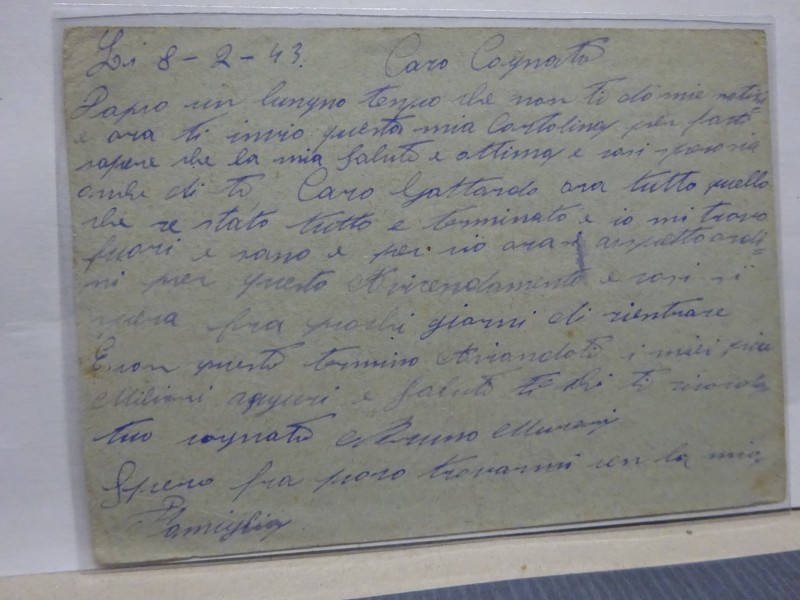 Li 8-2-43. Caro Cognato
Dapo un lungno tenpo che non ti do mie
e ora ti invio questa mia Cartolina per farti
sapere che la mia Salute e ottima e cosi spero sia
anche di te Caro Gottardo ora tutto quello
che e stato tutto e terminato e io mi trovo
fuori e sano e per cio ora aspetto ordi-
ni per questo Avicendamento e cosi si
spera fra pochi giorni di rientrare
E con questo termino Aviandoti i miei più
Miliori auguri e Saluti ti chi ti ricorda
tuo cognato Bruno
Spero fra poco trovarmi con la mia
Famiglia